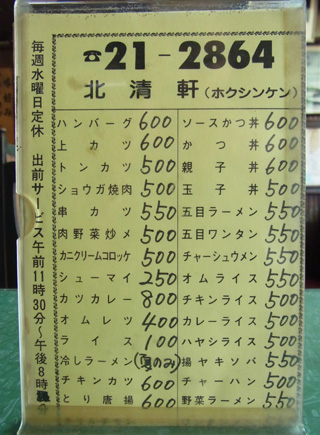 ☎21-2864
北清軒(ホクシンケン)
毎週水曜日定休 出前サービス午前11時30分~午後8時
ハンバーグ 600
上カツ 600
トンカツ 500
ショウガ焼肉 500
串カツ 550
肉野菜炒メ 500
カニクリームコロッケ 500
シューマイ 250
カツカレー 800
オムレツ 400
ライス 100
冷しラーメン(夏のみ)
チキンカツ 600
とり唐揚 600
ソースかつ丼 600
かつ丼 600
親子丼 600
玉子丼 500
五目ラーメン 550
五目ワンタン 550
チャーシュウメン 550
オムライス 550
チキンライス 500
カレーライス 500
ハヤシライス 500
揚ヤキソバ 550
チャーハン 500
野菜ラーメン 550